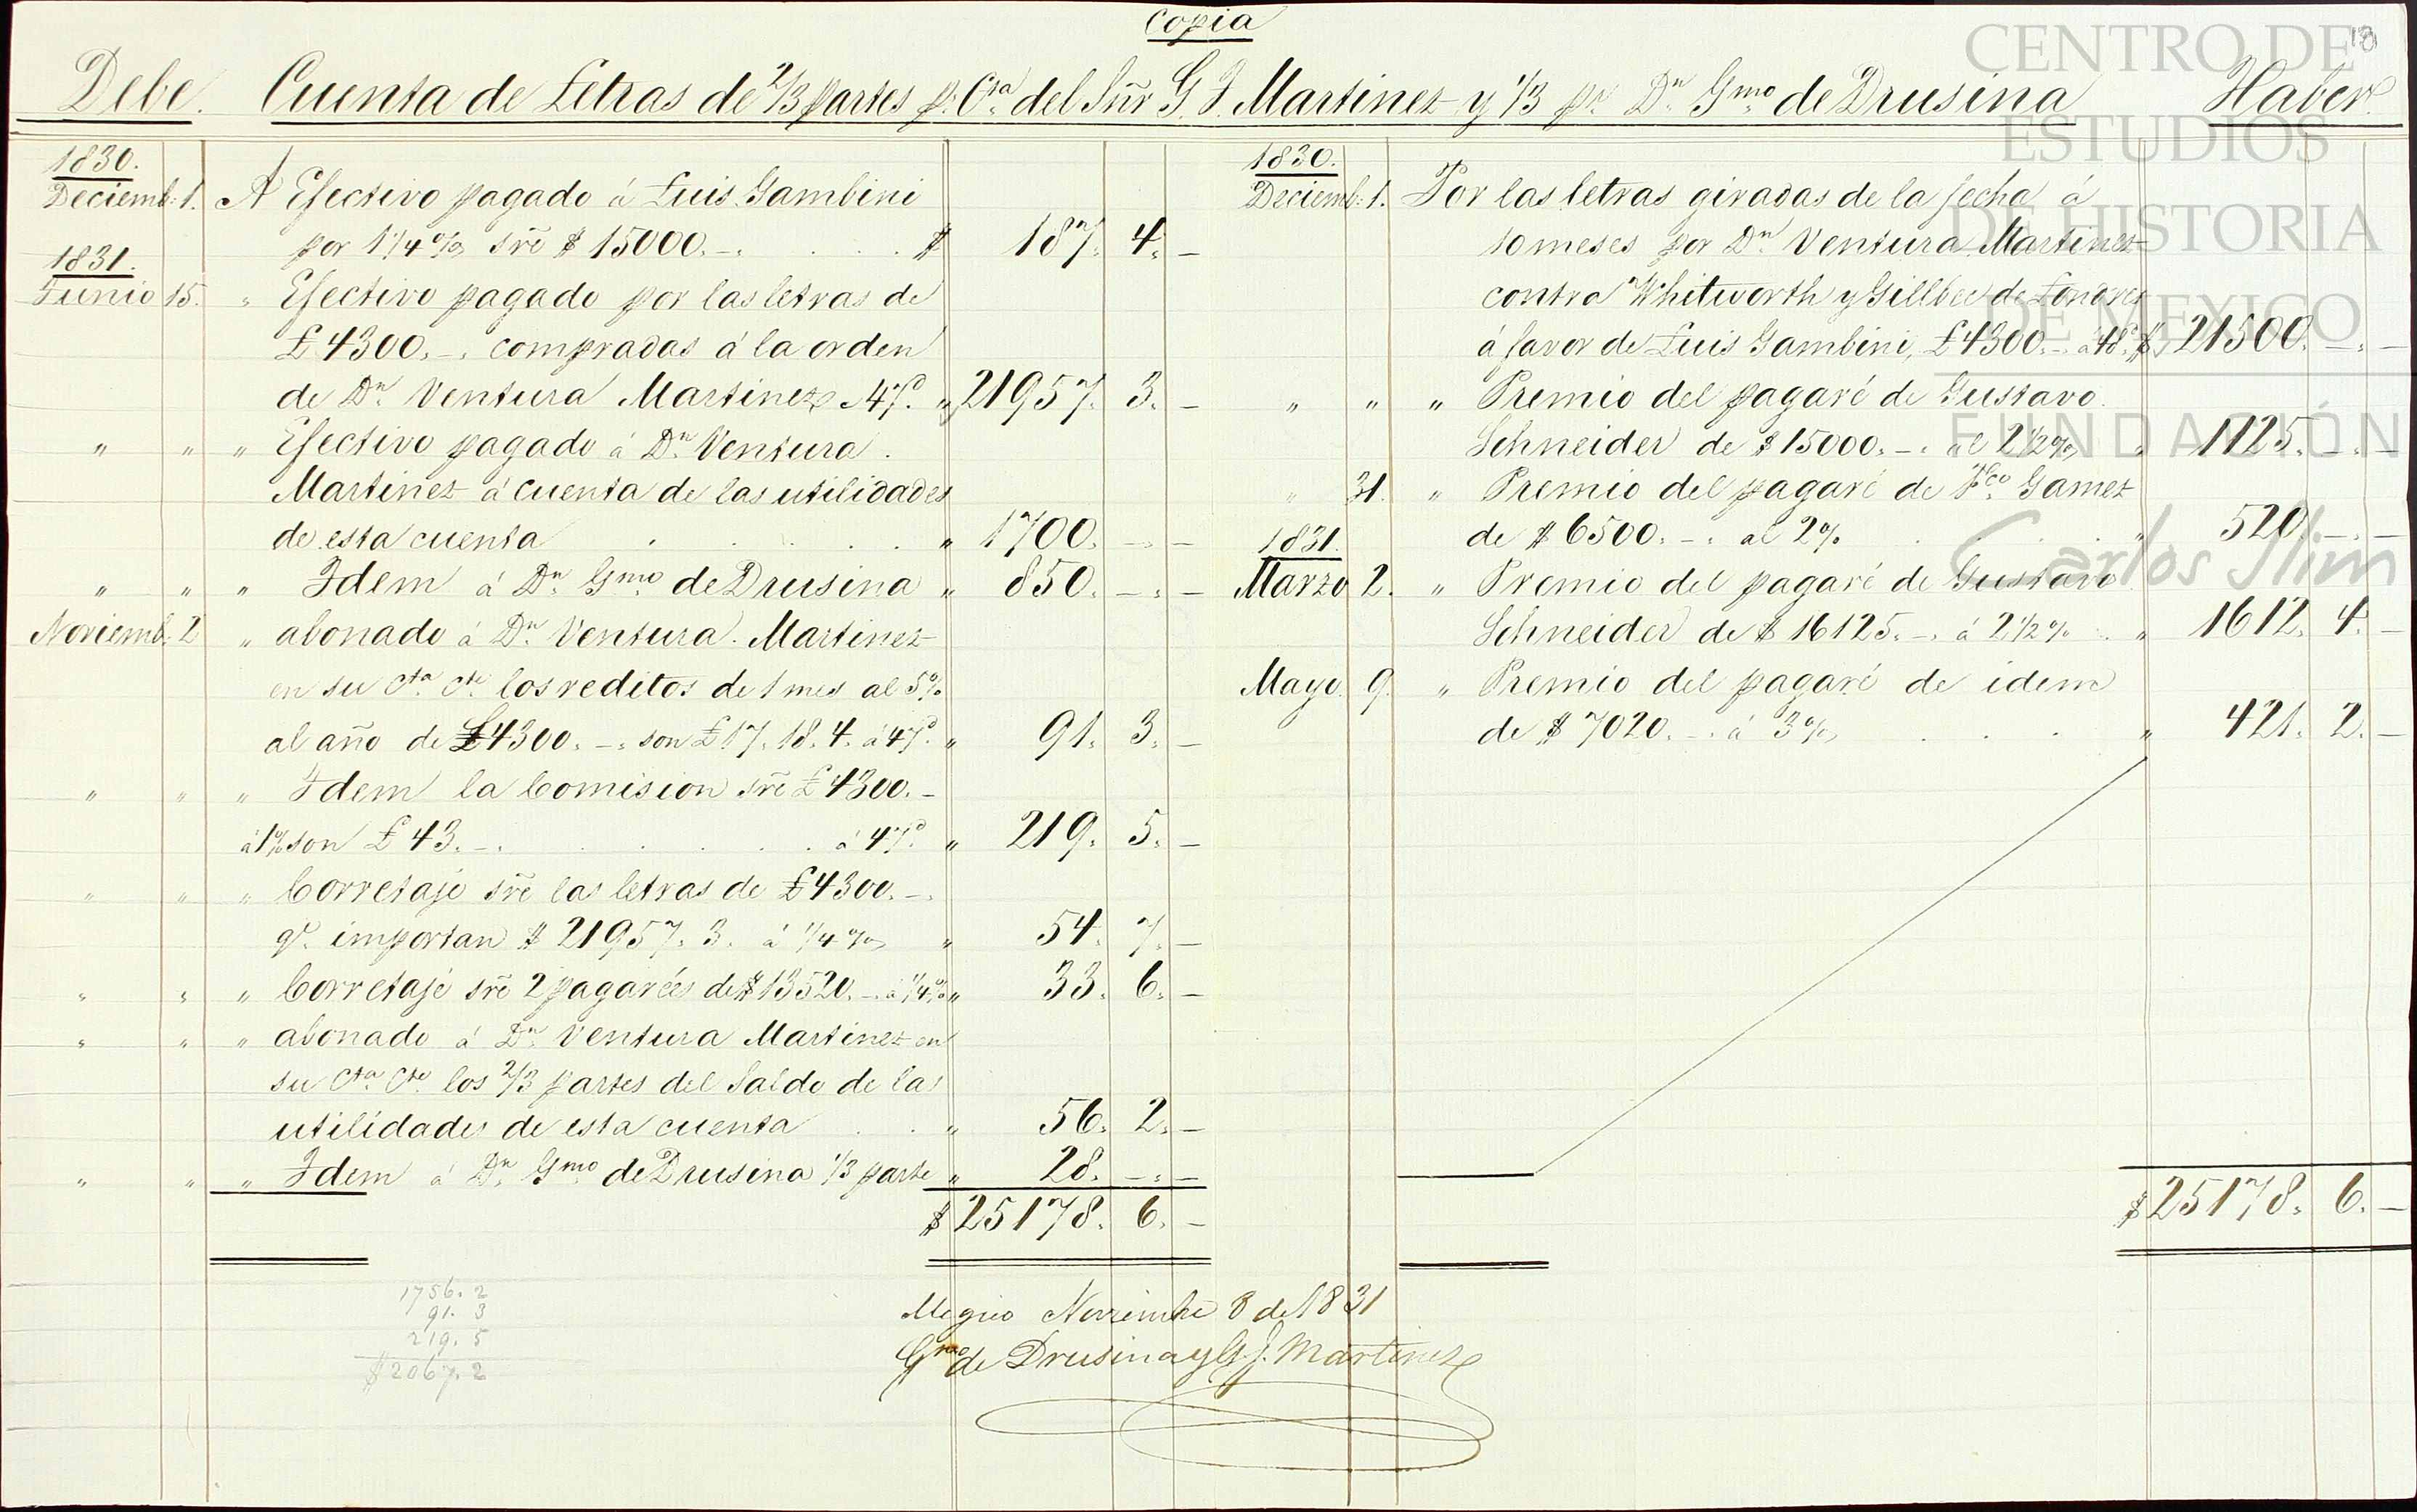 Copia
18
Debe. Cuenta de Letras de 2/3 partes p. Cta. del Sñr G. J. Martinez y 1/3 pr. Dn. Gmo de Drusina Haber.
1830.
Deciemb: 1. A Efectivo pagado á Luis Gambini
por 1 1/4 % sre $ 15000. -. . . . $ 187. 4. -
1831.
Junio 15. " Efectivo pagado por las letras de
£ 4300. -. compradas á la orden
de Dn. Ventura Martinez á 47d. " 21957. 3. -
" " " Efectivo pagado á Dn. Ventura
Martinez á cuenta de las utilidades
de esta cuenta . . . . . " 1700. -. -
" " " Idem á Dn. Gmo. de Drusina " 850. -. -
Noviemb. 2 " abonado á Dn. Ventura Martinez
en su Cta. Cte. los reditos de 1 mes al 5%
al año de £4300. -. son £17. 18. 4. á 47d. " 91. 3. -
" " " Idem la Comision sre £ 4300. -
á 1% son £ 43. -. . . . . . á 47d. " 219. 5. -
" " " Corretaje sre las letras de £4300. -.
qe. importan $ 21957. 3. á 1/4 % " 54. 7. -
" " " Corretaje sre 2 pagarées de $ 13520. -. á 1/4 % " 33. 6. -
" " " abonado á Dn. Ventura Martinez en
su Cta. Cte. los 2/3 partes del Saldo de las
utilidades de esta cuenta . . " 56. 2. -
" " " Idem á Dn. Gmo. de Drusina 1/3 parte " 28. -. -
$ 25178. 6. -
1830.
Deciemb: 1. Por las letras giradas de la fecha á
10 meses por Dn. Ventura Martinez
contra Whitworth y Gillbee de Londres
á favor de Luis Gambini, £4300. -. á 48d. $ 21500. -. -
" " " Premio del pagaré de Gustavo
Schneider de $ 15000. -. al 2 1/2 % " 1125. -. -
" 31. " Premio del pagaré de Fco. Gamez
de $ 6500. -. al 2% . . . . " 520. -. -
1831.
Marzo 2. " Premio del pagaré de Gustavo
Schneider de $ 16125. -. á 2 1/2 % . " 1612. 4. -
Mayo. 9. " Premio del pagaré de idem
de $ 7020. -. á 3% . . . " 421. 2. -
$ 25178. 6. -
1756. 2
91. 3
219. 5
$ 2067. 2
Megico Noviembre 8 de 1831
Gmo de Drusina y G. J. Martinez
CENTRO DE
ESTUDIOS
DE HISTORIA
DE MEXICO
FUNDACIÓN
Carlos Slim